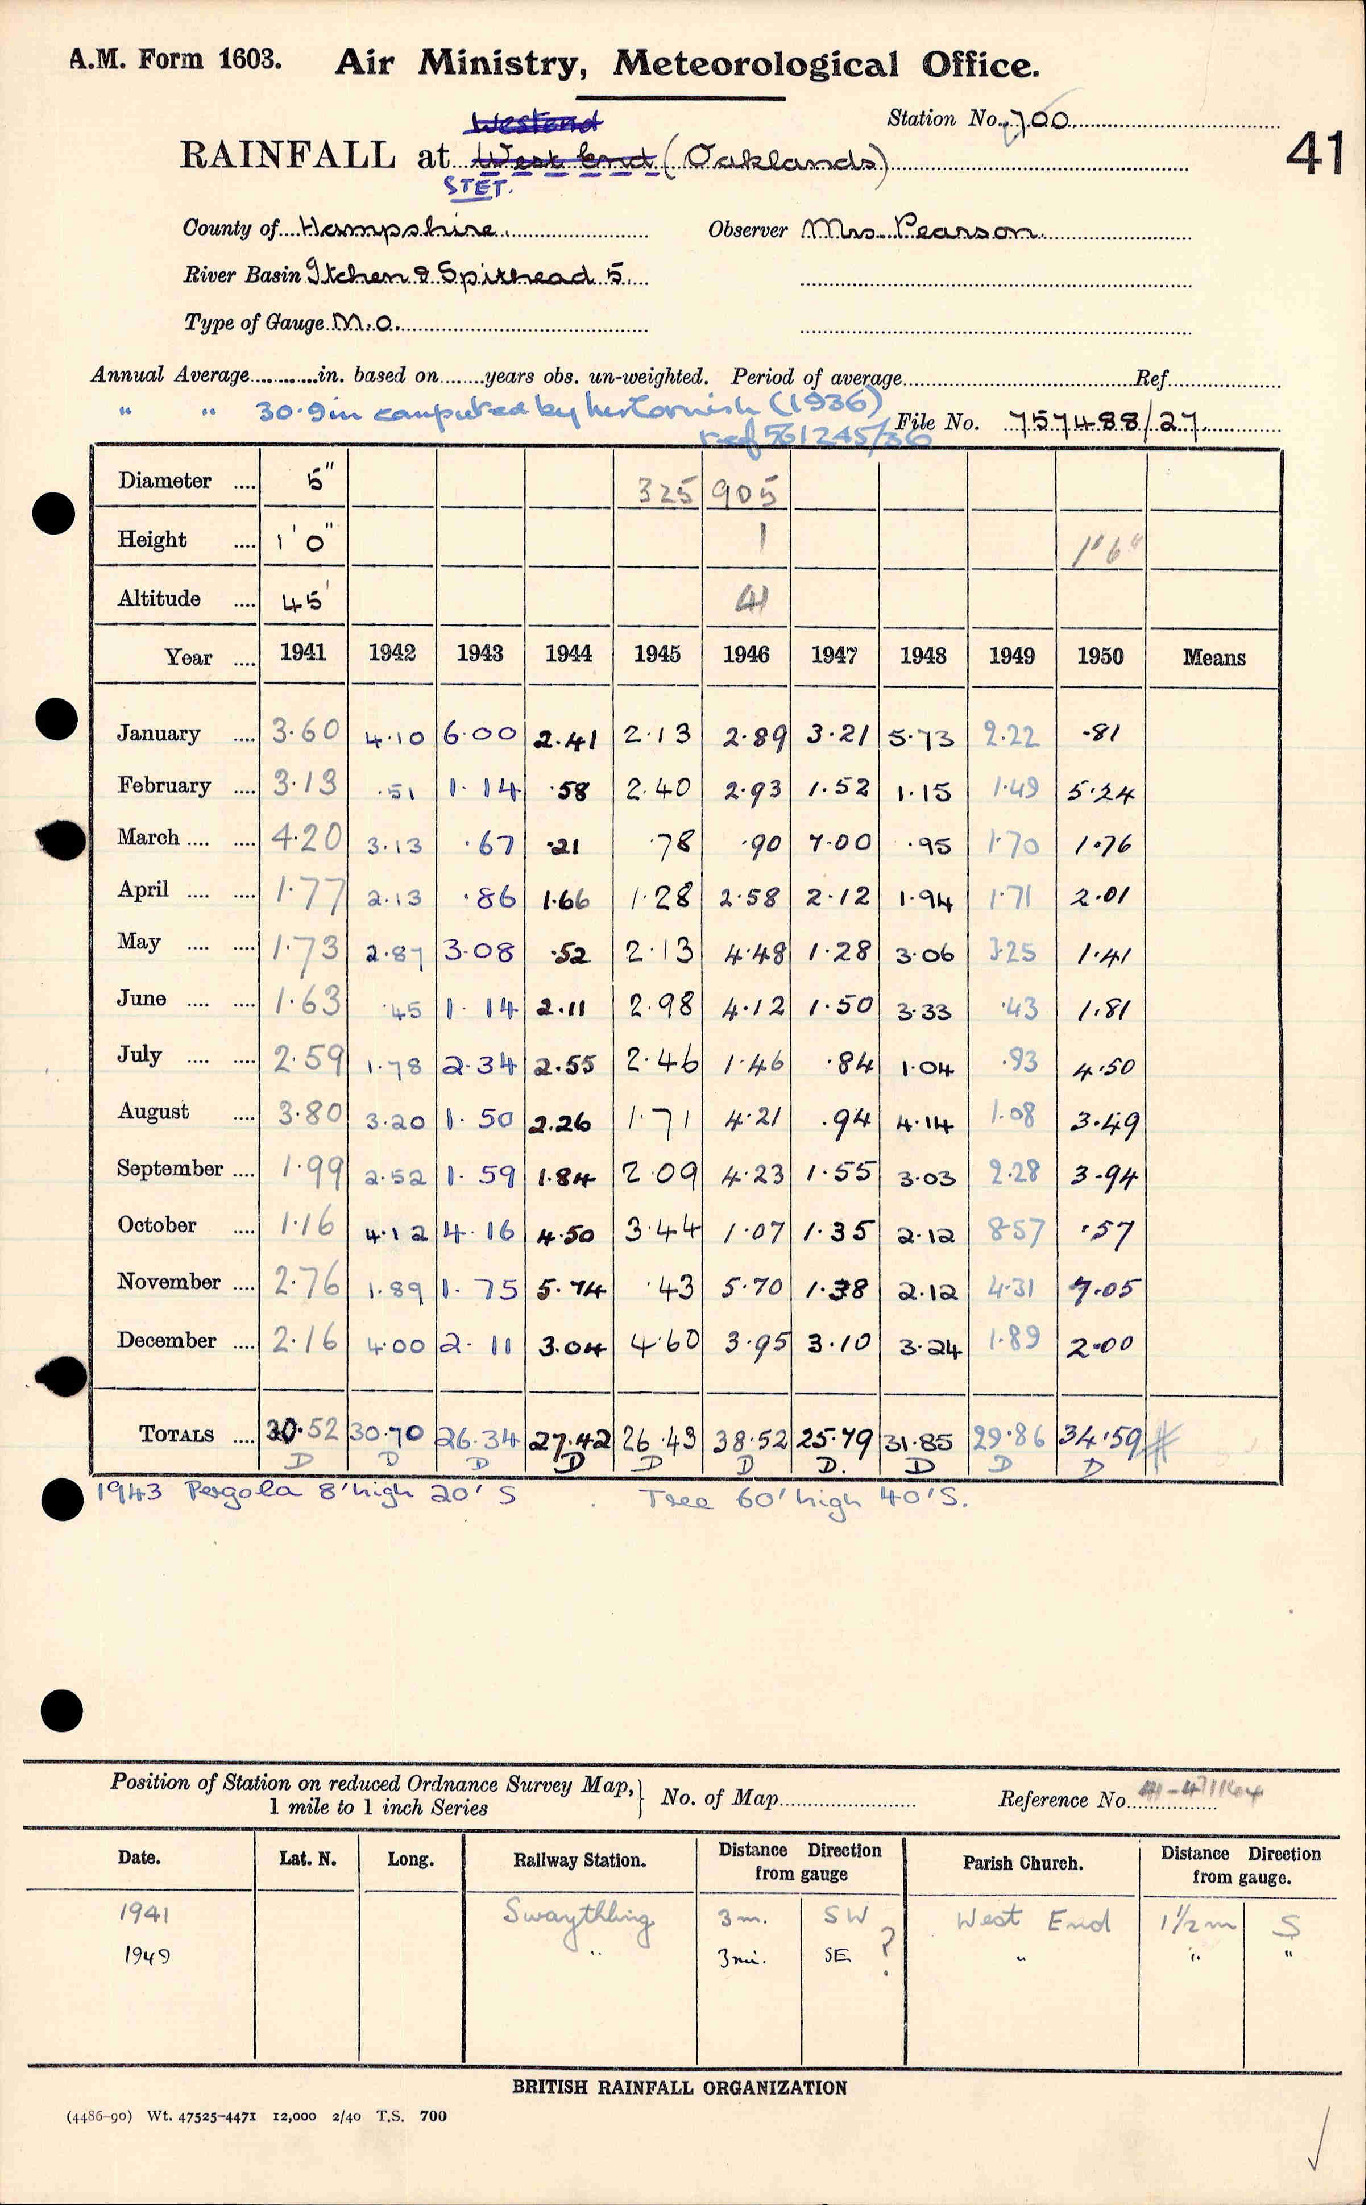 A.M. Form 1603. Air Ministry, Meteorological Office.
Westend
Station No. 700
RAINFALL at West End (Oaklands)
41
STET.
County of Hampshire. Observer Mrs. Pearson.
River Basin Itchen & Spithead 5.
Type of Gauge M.O.
Annual Average............in. based on........years obs. un-weighted. Period of average........ Ref........
" " 30.9in computed by (1936)
ref 561245/36 File No. 757488/27
Diameter .... 5" 325 905
Height .... 1' 0" 1 1'6"
Altitude .... 45' 41
Year .... 1941 1942 1943 1944 1945 1946 1947 1948 1949 1950 Means
January .... 3.60 4.10 6.00 2.41 2.13 2.89 3.21 5.73 2.22 .81
February .... 3.13 .51 1.14 .58 2.40 2.93 1.52 1.15 1.49 5.24
March .... .... 4.20 3.13 .67 .21 .78 .90 7.00 .95 1.70 1.76
April .... .... 1.77 2.13 .86 1.66 1.28 2.58 2.12 1.94 1.71 2.01
May .... .... 1.73 2.87 3.08 .52 2.13 4.48 1.28 3.06 3.25 1.41
June .... .... 1.63 .45 1.14 2.11 2.98 4.12 1.50 3.33 .43 1.81
July .... .... 2.59 1.78 2.34 2.55 2.46 1.46 .84 1.04 .93 4.50
August .... 3.80 3.20 1.50 2.26 1.71 4.21 .94 4.14 1.08 3.49
September .... 1.99 2.52 1.59 1.84 2.09 4.23 1.55 3.03 2.28 3.94
October .... 1.16 4.12 4.16 4.50 3.44 1.07 1.35 2.12 8.57 .57
November .... 2.76 1.89 1.75 5.74 .43 5.70 1.38 2.12 4.31 7.05
December .... 2.16 4.00 2.11 3.04 4.60 3.95 3.10 3.24 1.89 2.00
TOTALS .... 30.52 30.70 26.34 27.42 26.43 38.52 25.79 31.85 29.86 34.59 #
D D D D D D D. D D D
1943 Pergola 8' high 20' S. Tree 60' high 40' S.
Position of Station on reduced Ordnance Survey Map,
1 mile to 1 inch Series } No. of Map........ Reference No........
Date. Lat. N. Long. Railway Station. Distance Direction from gauge Parish Church. Distance Direction from gauge.
1941 Swaythling 3m. SW West End 1½m S
1949 " 3mi. SE ? " " "
BRITISH RAINFALL ORGANIZATION
(4486-90) Wt. 47525-4471 12,000 2/40 T.S. 700